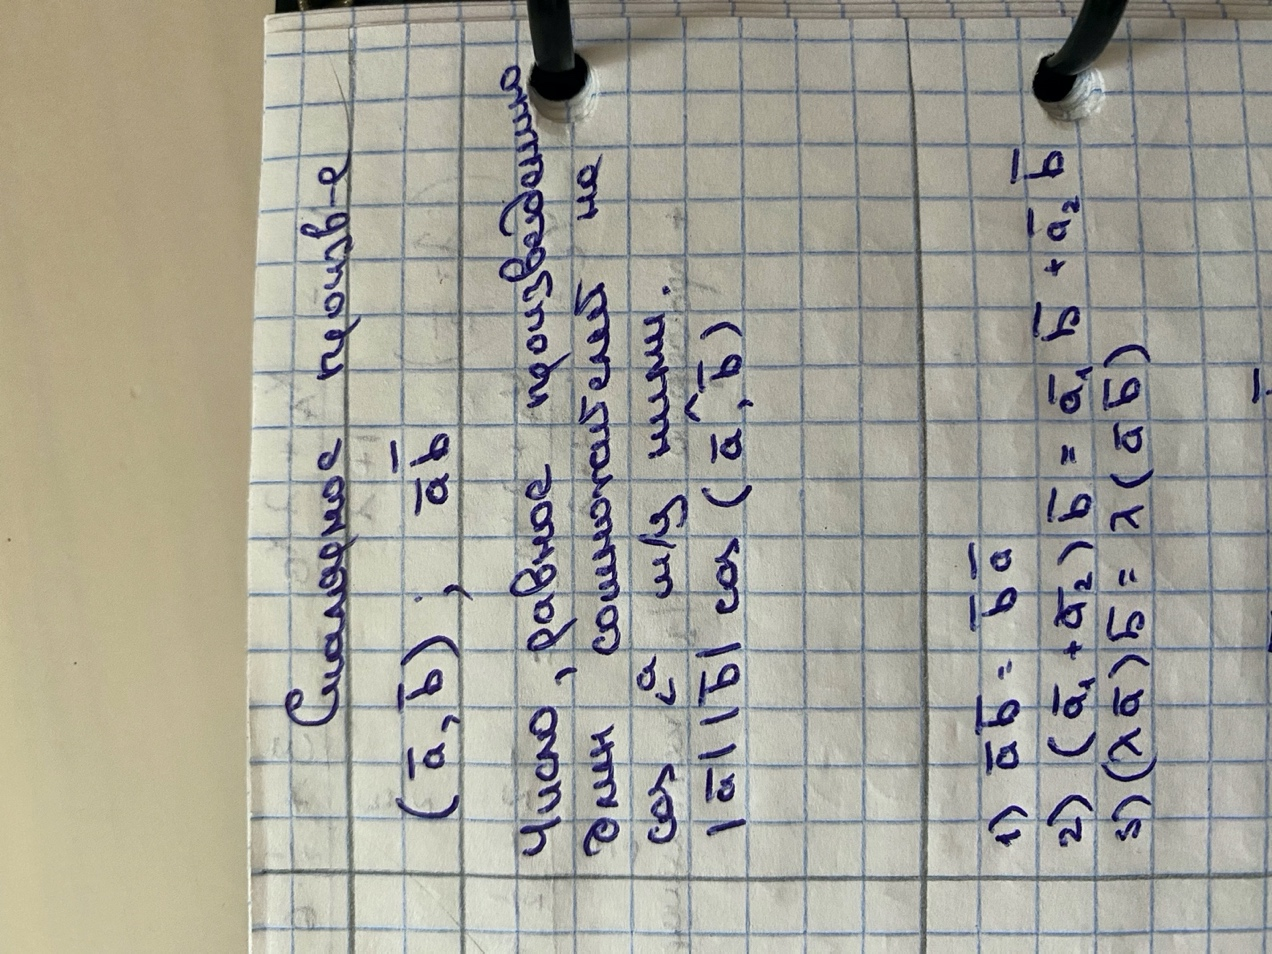 Скалярное произв-е
(a̅, b̅) ; a̅ b̅
Число, равное произведению
длин сомножителей на
cos ∠а м/у ними.
|a̅| |b̅| cos (a̅,^b̅)
1) a̅ b̅ = b̅ a̅
2) (a̅₁ + a̅₂) b̅ = a̅₁ b̅ + a̅₂ b̅
3) (λ a̅) b̅ = λ (a̅ b̅)